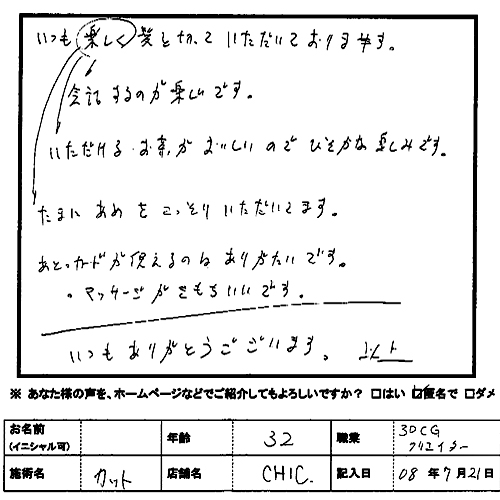 いつも 楽しく 髪を切っていただいております。
会話するのが楽しいです。
いただける お茶が おいしいので ひそかな楽しみです。
たまに あめを こっそり いただいてます。
あと、カードが使えるのは ありがたいです。
・マッサージが きもちいいです。
いつも ありがとうございます。 以上
※ あなた様の声を、ホームページなどでご紹介してもよろしいですか? □はい ☑匿名で □ダメ
お名前 (イニシャル可) 年齢 32 職業 3DCG クリエイター
施術名 カット 店舗名 CHIC. 記入日 08 年 7 月 21 日